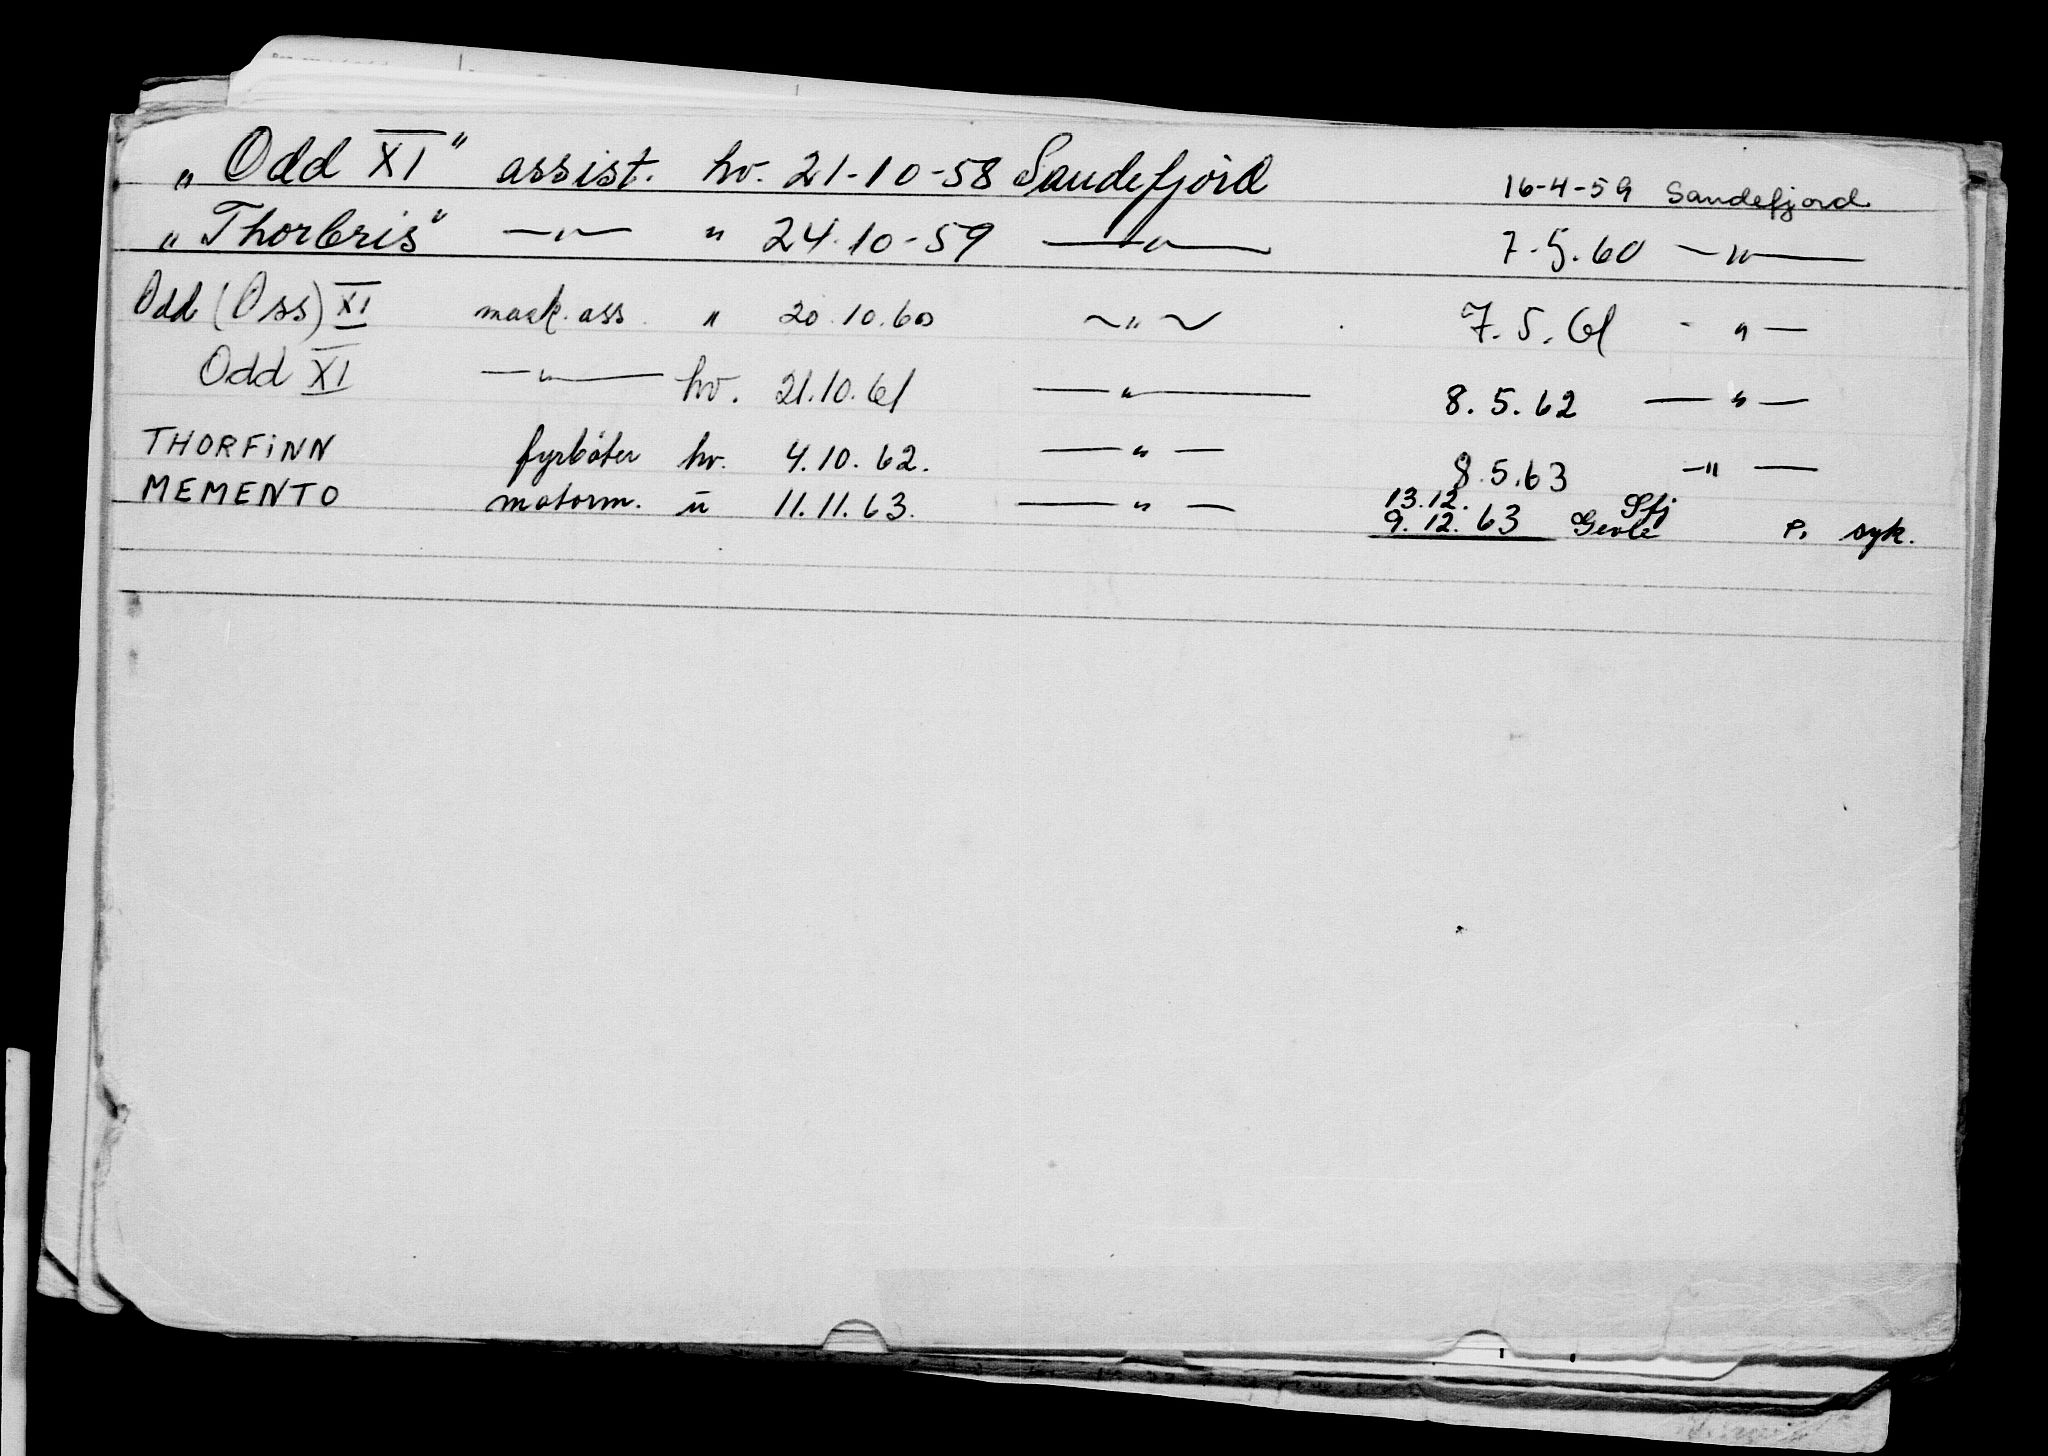 „ Odd XI " assist. hv. 21-10-58 Sandefjord 16-4-59 Sandefjord
„ Thorbris" —"— " 24.10-59 —"— 7.5.60 —"—
Odd (Oss) XI mask. ass. " 20.10.60 ~"~ 7.5.61 - " —
Odd XI —"— hv. 21.10.61 —"— 8.5.62 —"—
THORFINN fyrbøter hv. 4.10.62. —"— 8.5.63 —"—
13.12. Sfj
MEMENTO motorm. u 11.11.63. —"— 9.12.63 Gevle P. syk.